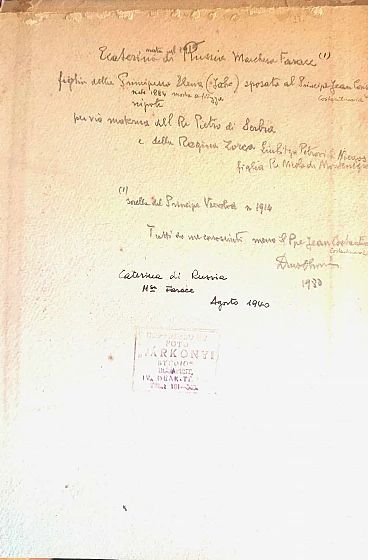 nata nel 1915
Ecaterina di Russia Marchesa Farace (1)
figlia della Principessa Elena (Joho) sposata al Principe Jean Cons
Costantinovic
nata 1884 morta a Nizza
nipote
per via materna del Re Pietro di Serbia
e della Regina Zorca Petrovic Niegos
figlia Re Nicola di Montenegro
(1) sorella del Principe Vsevolod n 1914
Tutti da me conosciuti meno il Ppe Jean Costantin
1980
Caterina di Russia
Msa Farace
Agosto 1940
FOTO
VARKONYI
STUDIO
BUDAPEST,
IV.